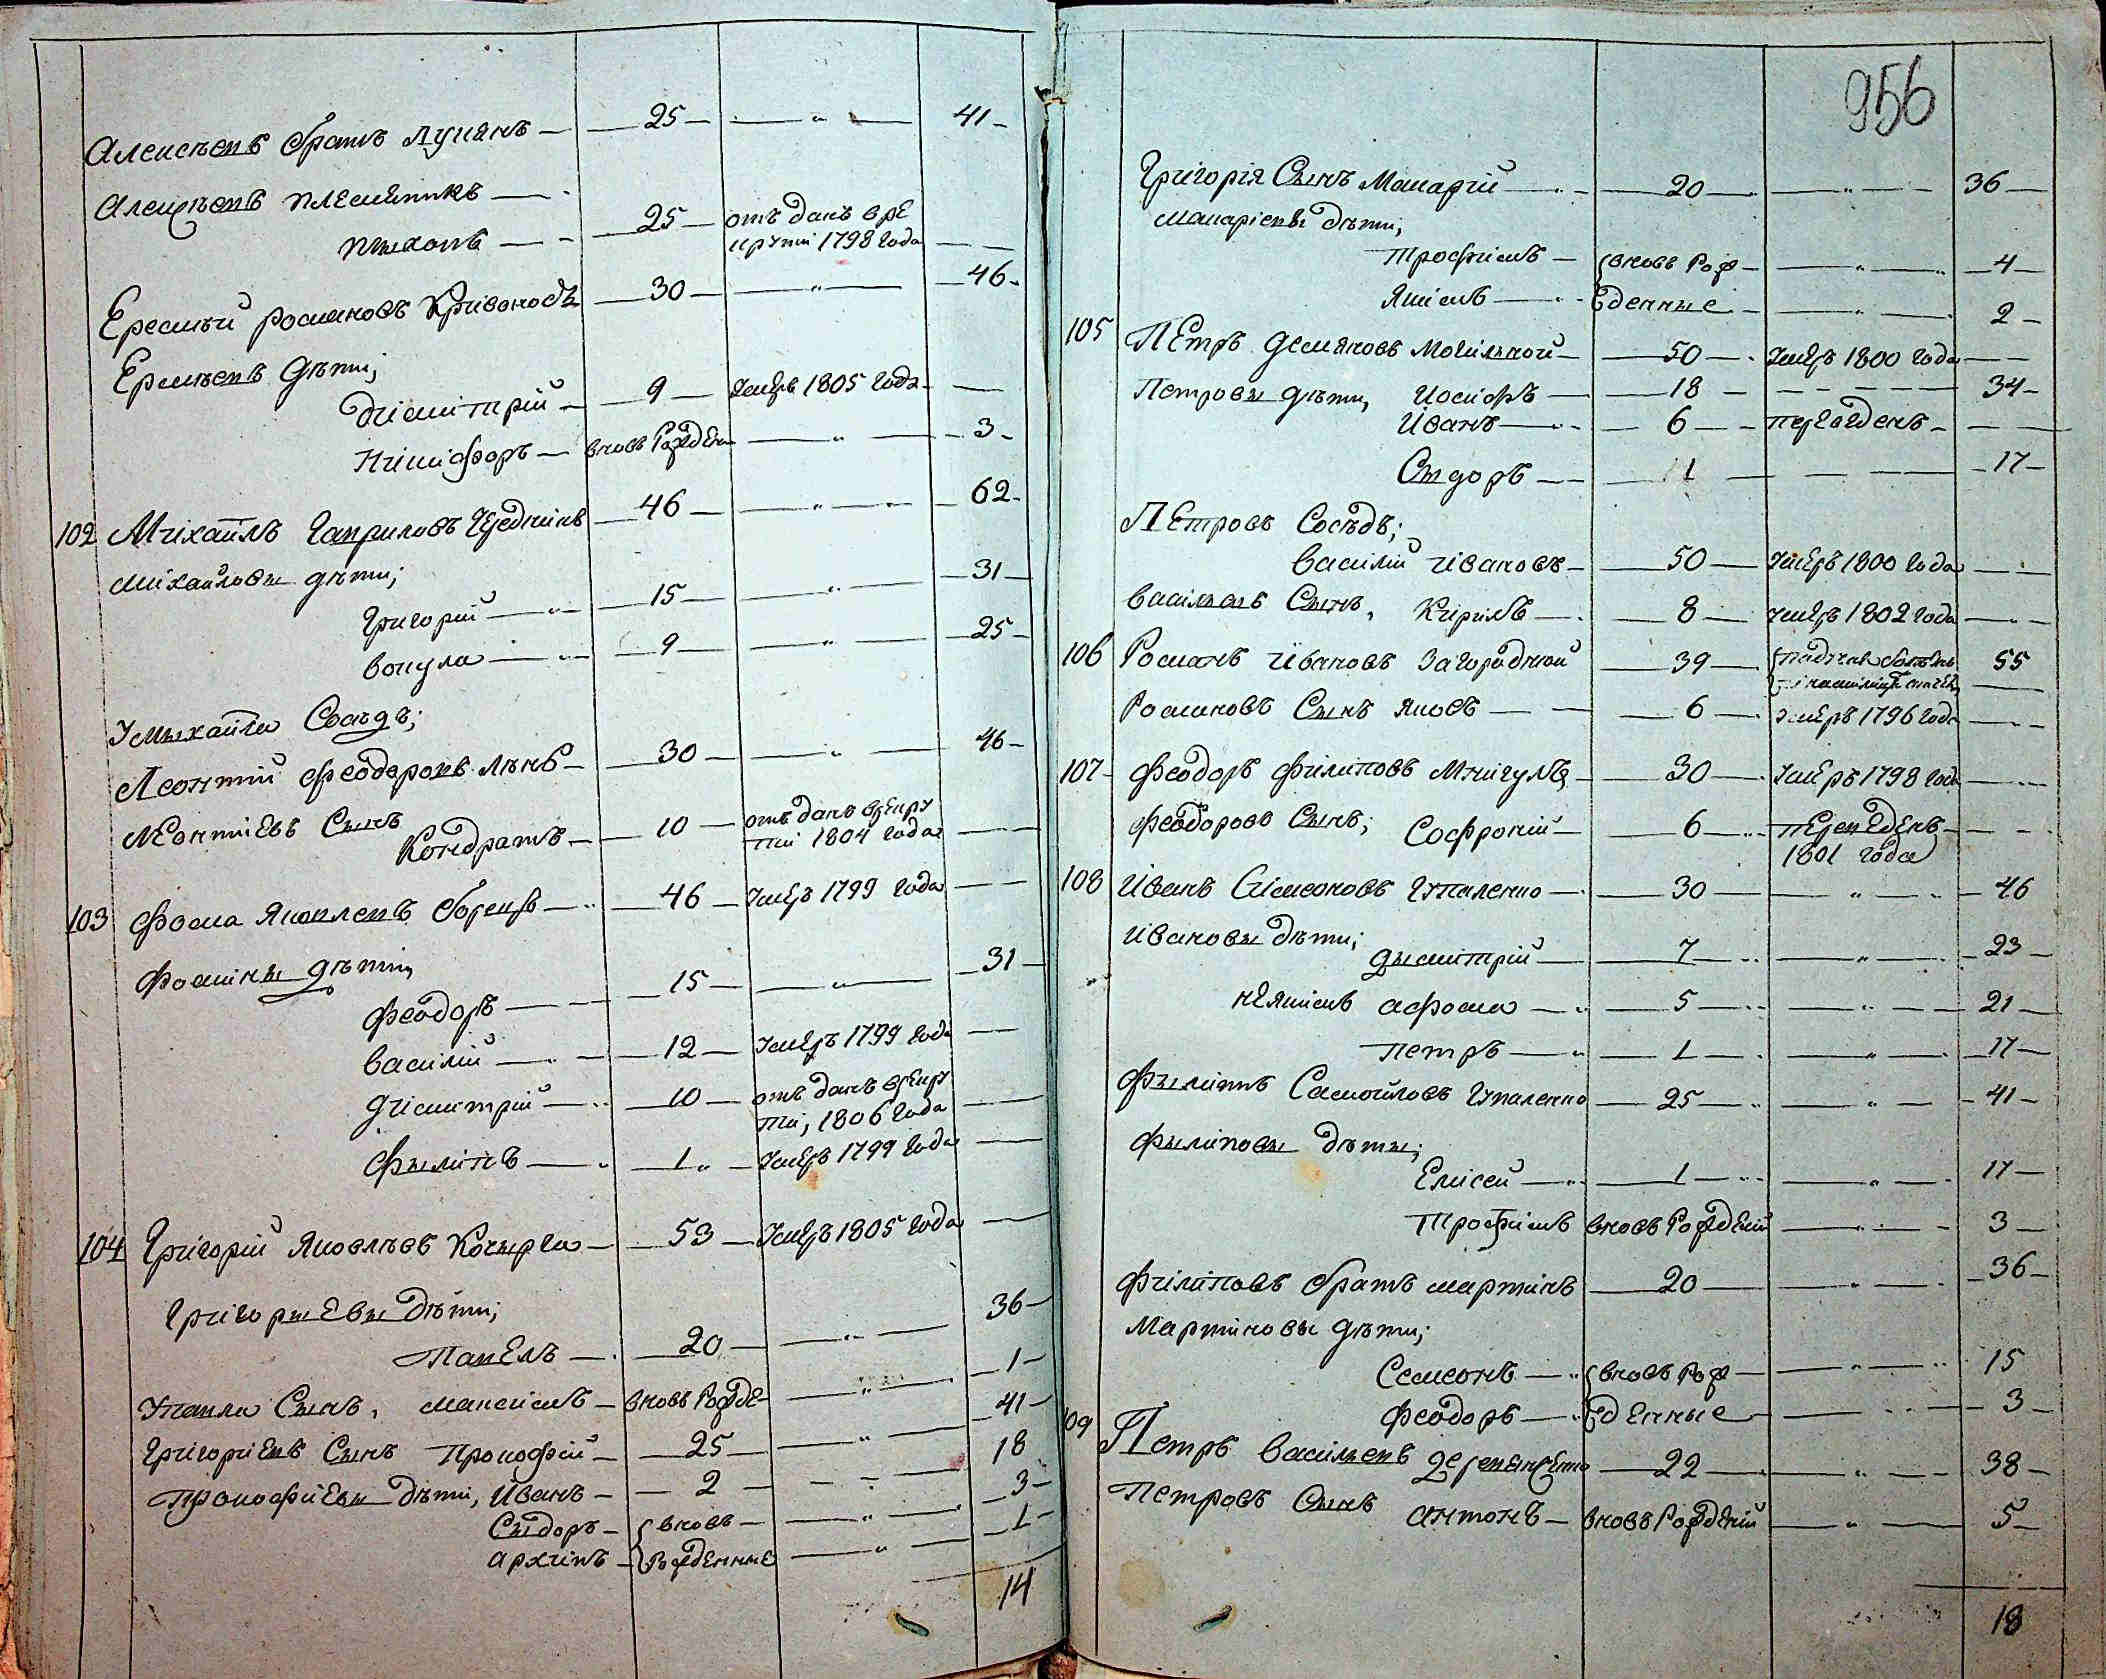 Алексѣевъ братъ Лукянъ — 25 — „ — 41
Алексѣевъ племѣникъ —
Пыхопъ — 25 — отъ данъ в ре
крути 1798 года —
Еремѣй Романовъ Кривоносъ 30 — „ — 46
Еремѣевъ дѣти;
Дімитрій — 9 — умеръ 1805 года —
Нікіфоръ — вновь рожден — „ — 3
102 Міхайлъ Гавриловъ
46 — „ — 62
Міхайловы дѣти;
Григорій — 15 — „ — 31
Вокула — 9 — „ — 25
У Мыхайла Сосѣдъ;
Леонтій Феодоровъ 30 — „ — 46
Леонтіевъ Сынъ
Кондратъ — 10 — отъ данъ в рекру
ти 1804 года —
103 Фома Яковлевъ 46 — умеръ 1799 года —
Фомины дѣти,
Феодоръ — 15 — „ — 31
Василій — 12 — умеръ 1799 года —
Дімитрій — 10 — отъ данъ в рекру
ти, 1806 года —
Фылипъ — 1 „ — умеръ 1799 года —
104 Григорій Яковлевъ Кочырга — 53 — умеръ 1805 года —
Григорыевы дѣти;
Павелъ — 20 — „ — 36
У Павла Сынъ, Максимъ — вновь рожде — „ — 1
Григоріевъ Сынъ Прокофій — 25 — „ — 41
Прокофіевы дѣти, Иванъ — 2 — „ — 18
Сыдоръ — вновь — „ — 3
Архипъ — рожденные — „ — 1
14
956
Григорія Сынъ Макарій — 20 — „ — 36
Макаріевы дѣти;
Трофимъ — вновь рож — „ — 4
Якимъ — денные — „ — 2
105 Петръ Демяновъ Могильной — 50 — умеръ 1800 года —
Петровы дѣти, Иосифъ — 18 — 34
Иванъ — 6 — переведенъ —
1 — 17
Петровъ Сосѣдъ;
Василій Ивановъ — 50 — умеръ 1800 года —
Васильевъ Сынъ, Кирилъ — 8 — умеръ 1802 года —
106 Романъ Ивановъ Загородной 39 — 55
Романовъ Сынъ Яковъ — 6 — умеръ 1796 года —
107 Феодоръ Филиповъ 30 — умеръ 1798 года —
Феодоровъ Сынъ; Софроній — 6 — переведенъ —
1801 года
108 Иванъ Сімеоновъ Чупаленко — 30 — „ — 46
Ивановы дѣти;
Дымитрій — 7 — „ — 23
афома — 5 — „ — 21
Петръ — 1 — „ — 17
Фылипъ Самойловъ Чупаленко 25 — „ — 41
Фылиповы дѣты;
Елисей — 1 — „ — 17
Трофимъ вновь рожденій — „ — 3
Филиповъ братъ Мартинъ 20 — „ — 36
Мартиновы дѣти;
Семеонъ — вновь рож — „ — 15
Феодоръ — денные — 3
109 Петръ Васильевъ 22 — „ — 38
Петровъ Сынъ Антонъ — вновь рожденій — „ — 5
18